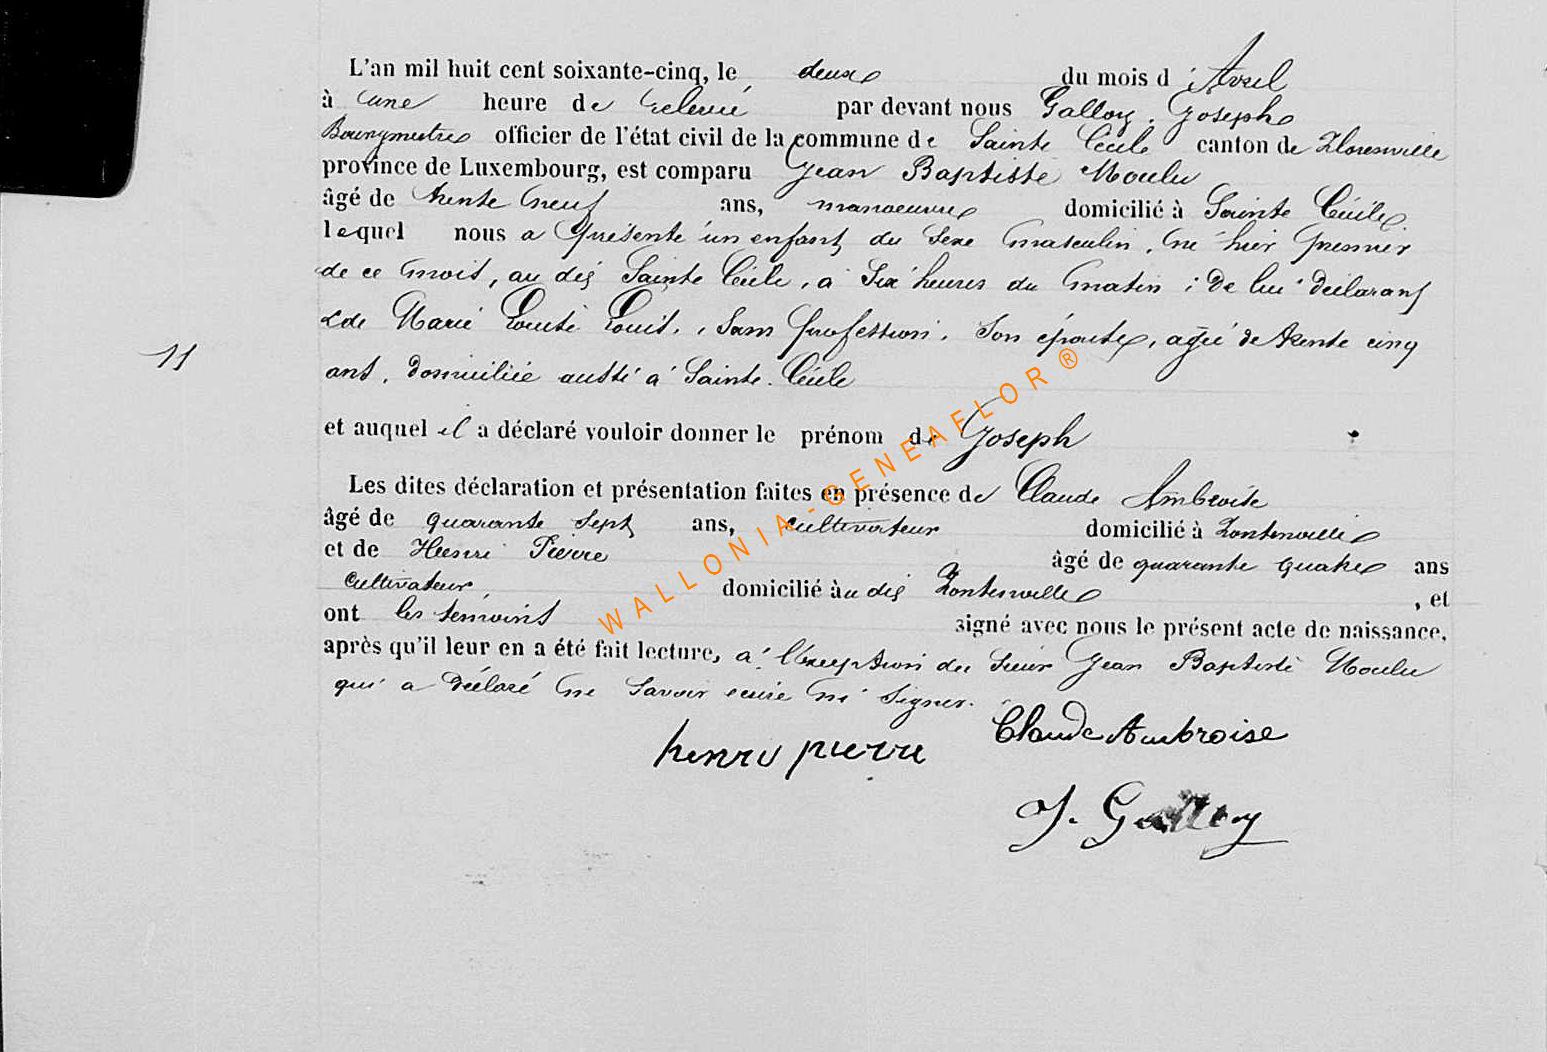 L'an mil huit cent soixante-cinq, le deux du mois d'Avril
à une heure de relevé par devant nous Galloy, Joseph
Bourgmestre officier de l'état civil de la commune de Sainte Cécile canton de Florenville
province de Luxembourg, est comparu Jean Baptiste Moulu
âgé de trente neuf ans, manoeuvre domicilié à Sainte Cécile
lequel nous a présenté un enfant du sexe masculin, né hier premier
de ce mois, au dit Sainte Cécile, à six heures du matin ; De lui déclarant
& de Marie Louise Louis, sans profession, son épouse, agée de trente cinq
ans, domiciliée aussi à Sainte Cécile
11
et auquel il a déclaré vouloir donner le prénom de Joseph
Les dites déclaration et présentation faites en présence de Claude Ambroise
âgé de quarante sept ans, cultivateur domicilié à Fontenoille
et de Henri Pierre âgé de quarante quatre ans
cultivateur, domicilié àu dit Fontenoille, et
ont les temoins signé avec nous le présent acte de naissance,
après qu'il leur en a été fait lecture, à l'exception du sieur Jean Baptiste Moulu
qui a déclaré ne savoir ecrire ni signer.
Claude Ambroise
henri pierre
J. Galloy
WALLONIA-GENEAFLOR®